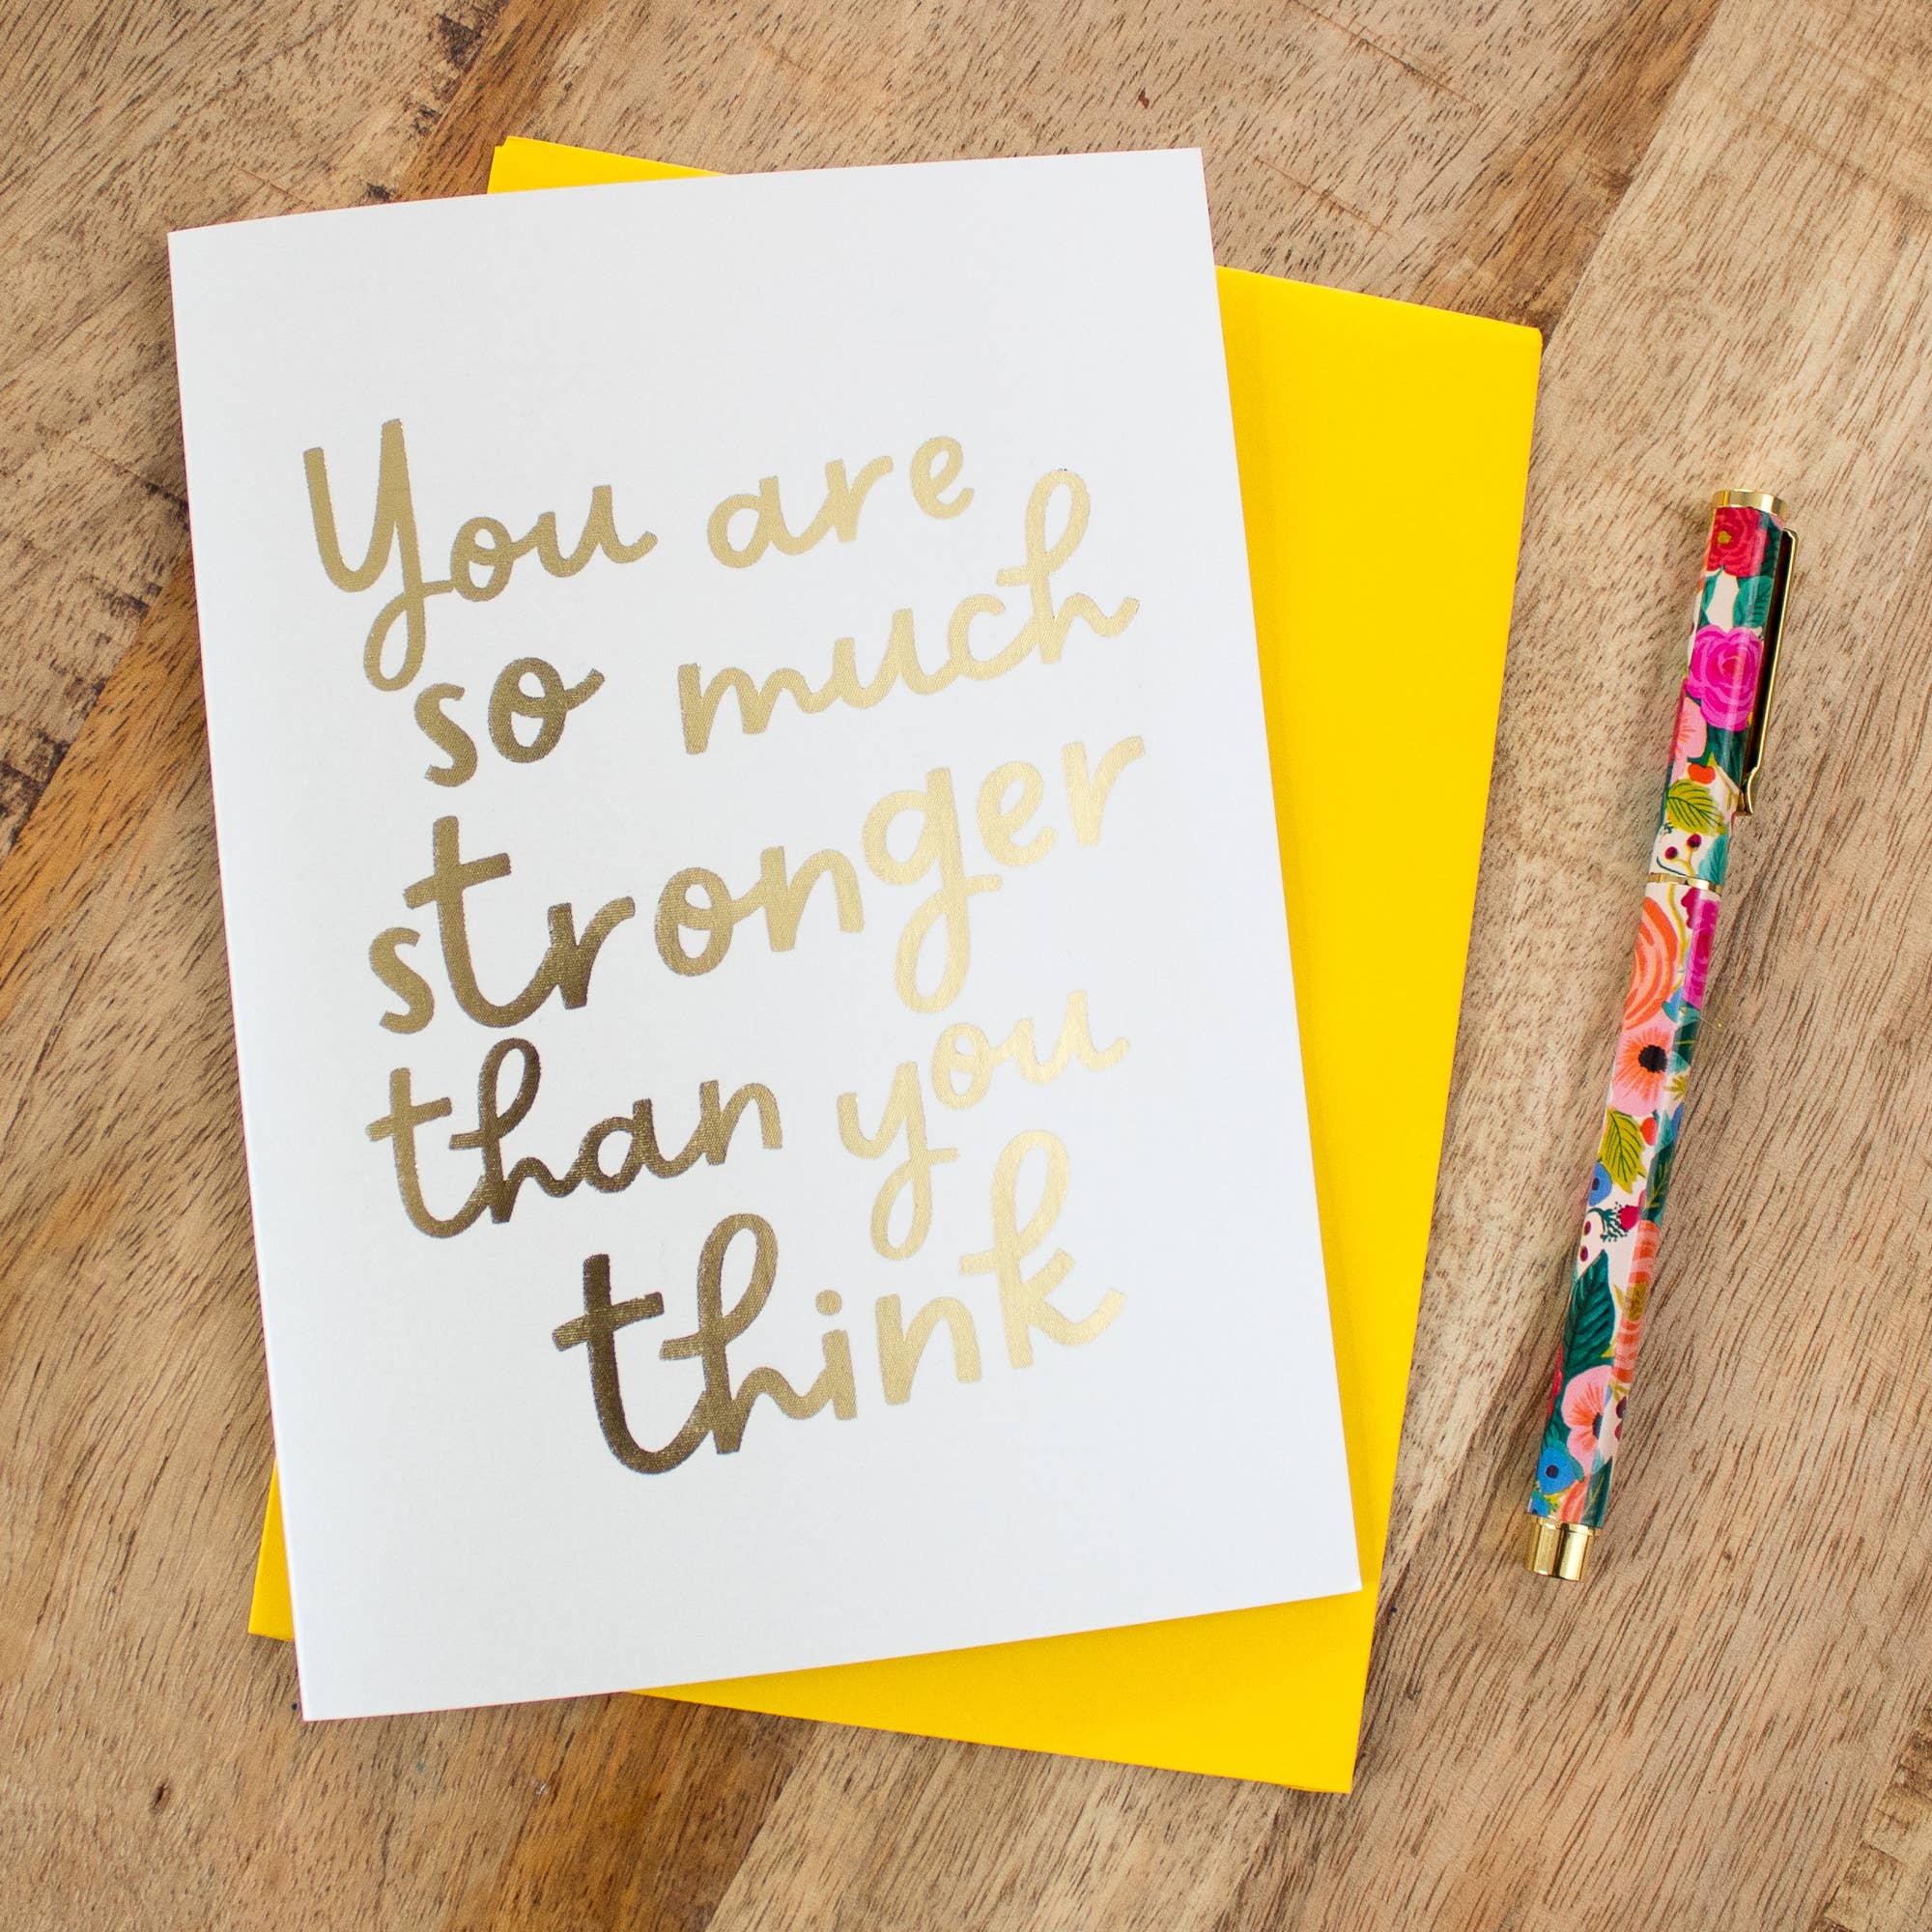 You are
so much
stronger
than you
think